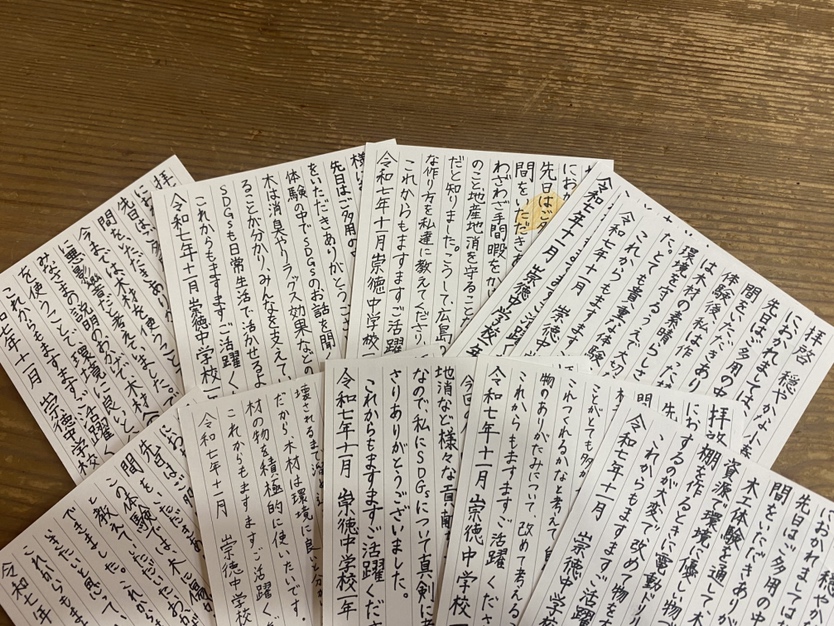 拝
にお
先日はご多
間をいただきあり
今までは木材を使うこと
に悪影響だと考えていました
みなさまの説明のおかげで木材
を使うことで環境に良い
これからもますますご活躍く
令和七年十一月 崇徳中学校
様に
先日はご多用の中
をいただきありがとうござ
体験の中でSDGsのお話を聞
木は消臭やリラックス効果など
ることが分かり、みんなを支えて、
SDGsも日常生活で活かせるよ
これからもますますご活躍く
令和七年十一月 崇徳中学校
にお
先日はご多
間をいただきあ
わざわざ手間暇をか
のこと地産地消を守ること
だと知りました。こうして、広島の
な作り方を私達に教えてくださり、
これからもますますご活躍く
令和七年十一月 崇徳中学校一
令和七年十一月 崇徳中学
拝啓 穏やかな小春
におかれましては、
先日はご多用の中
間をいただきあり
体験後、私は作った
は、木材の素晴らしさ
環境を守るうえで大切
た。とても貴重な体験
これからもますます
令和七年十一月 崇徳中
先日は
間をいただき
この体験では、木に
と教えていただいた
できました。これから
いきたいと思って
これからもます
令和七年
壊されるまで
だから木材は環境に良いと分か
材の物を積極的に使いたいです。
これからもますますご活躍く
令和七年十一月 崇徳中学校
今回の
地消など様々な貢献
なので、私にSDGsについて真剣に考
さりありがとうございました。
これからもますますご活躍くださ
令和七年十一月 崇徳中学校一年
ことがとても多か
これつくれるかなと考えて
物のありがたみについて、改めて考える
これからもますますご活躍くださ
令和七年十一月 崇徳中学校一
拝啓 穏やか
におかれましては
先日はご多用の中
間をいただきありが
木工体験を通して、木
資源で環境に優しい物
棚を作るときに、電動ドリル
するのが大変で、改めて物を
これからもますますご活躍
令和七年十一月 崇徳中学